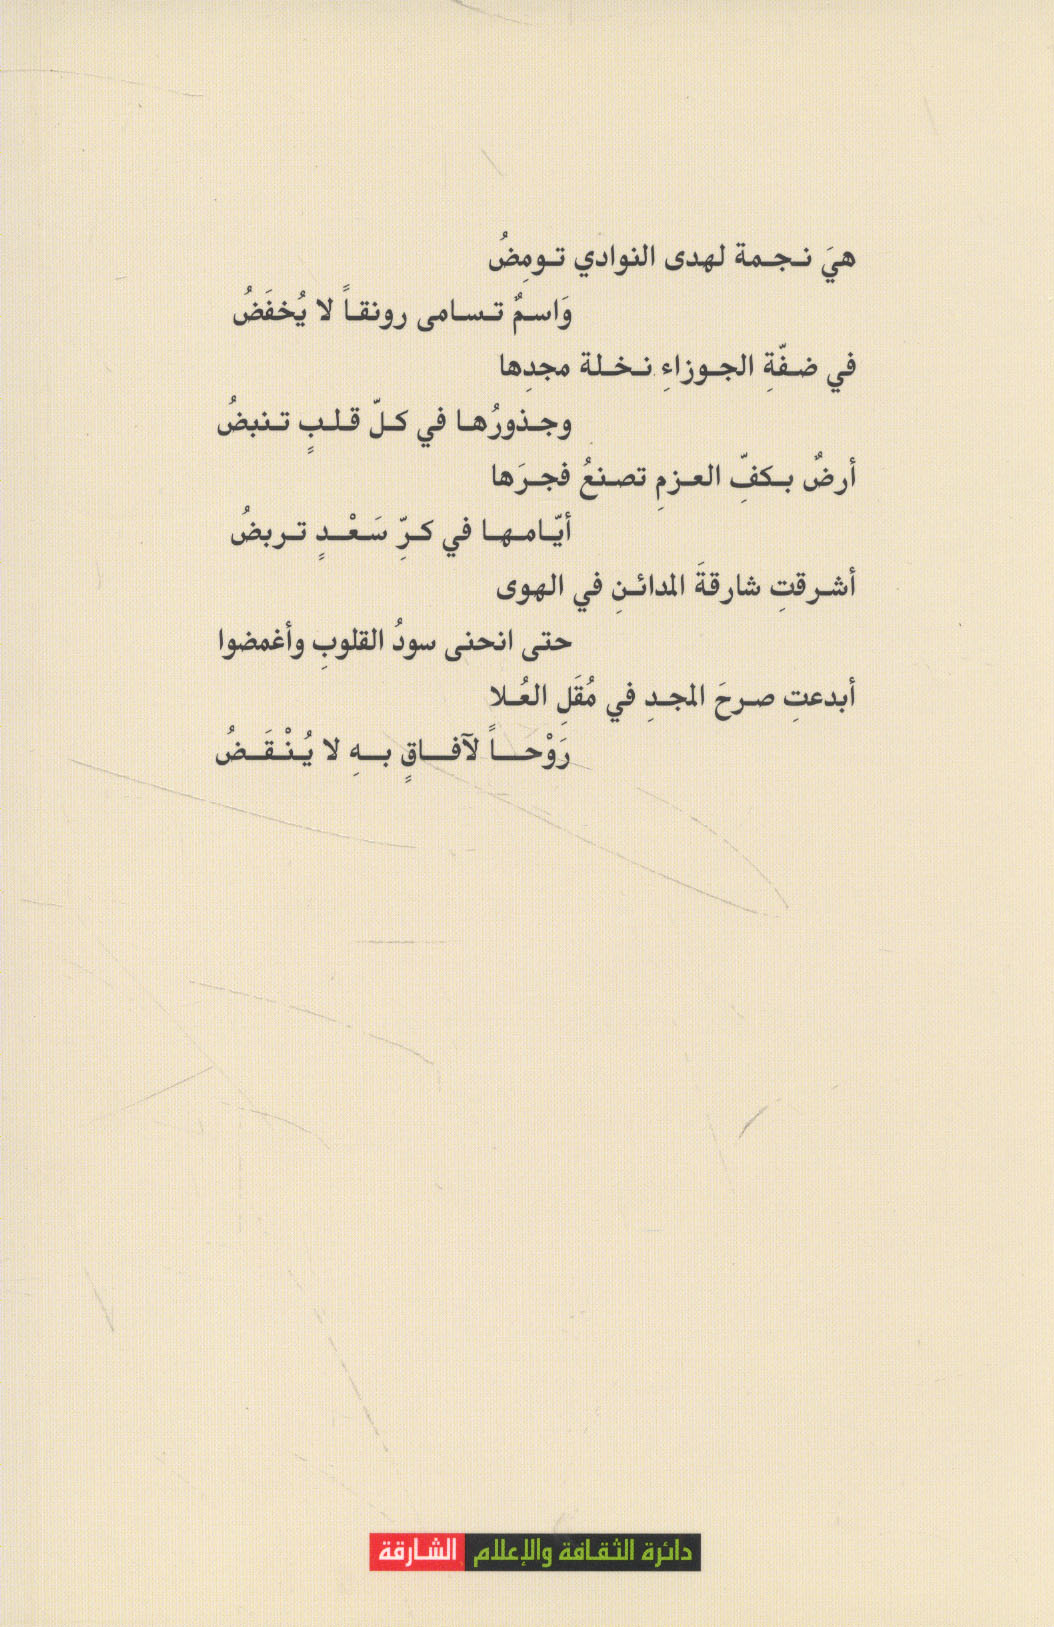 هيَ نجمة لهدى النوادي تومِضُ
وَاسمٌ تسامى رونقاً لا يُخفَضُ
في ضفّةِ الجوزاءِ نخلة مجدِها
وجذورُها في كلّ قلبٍ تنبضُ
أرضٌ بكفِّ العزمِ تصنعُ فجرَها
أيّامها في كرِّ سَعْدٍ تربضُ
أشرقتِ شارقةَ المدائنِ في الهوى
حتى انحنى سودُ القلوبِ وأغمضوا
أبدعتِ صرحَ المجدِ في مُقَلِ العُلا
رَوْحاً لآفاقٍ بهِ لا يُنْقَضُ
دائرة الثقافة والإعلام الشارقة